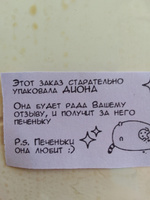 Этот заказ старательно
упаковала ДИОНА
Она будет рада Вашему
отзыву, и получит за него
печеньку
P.S. Печеньки
она любит :)